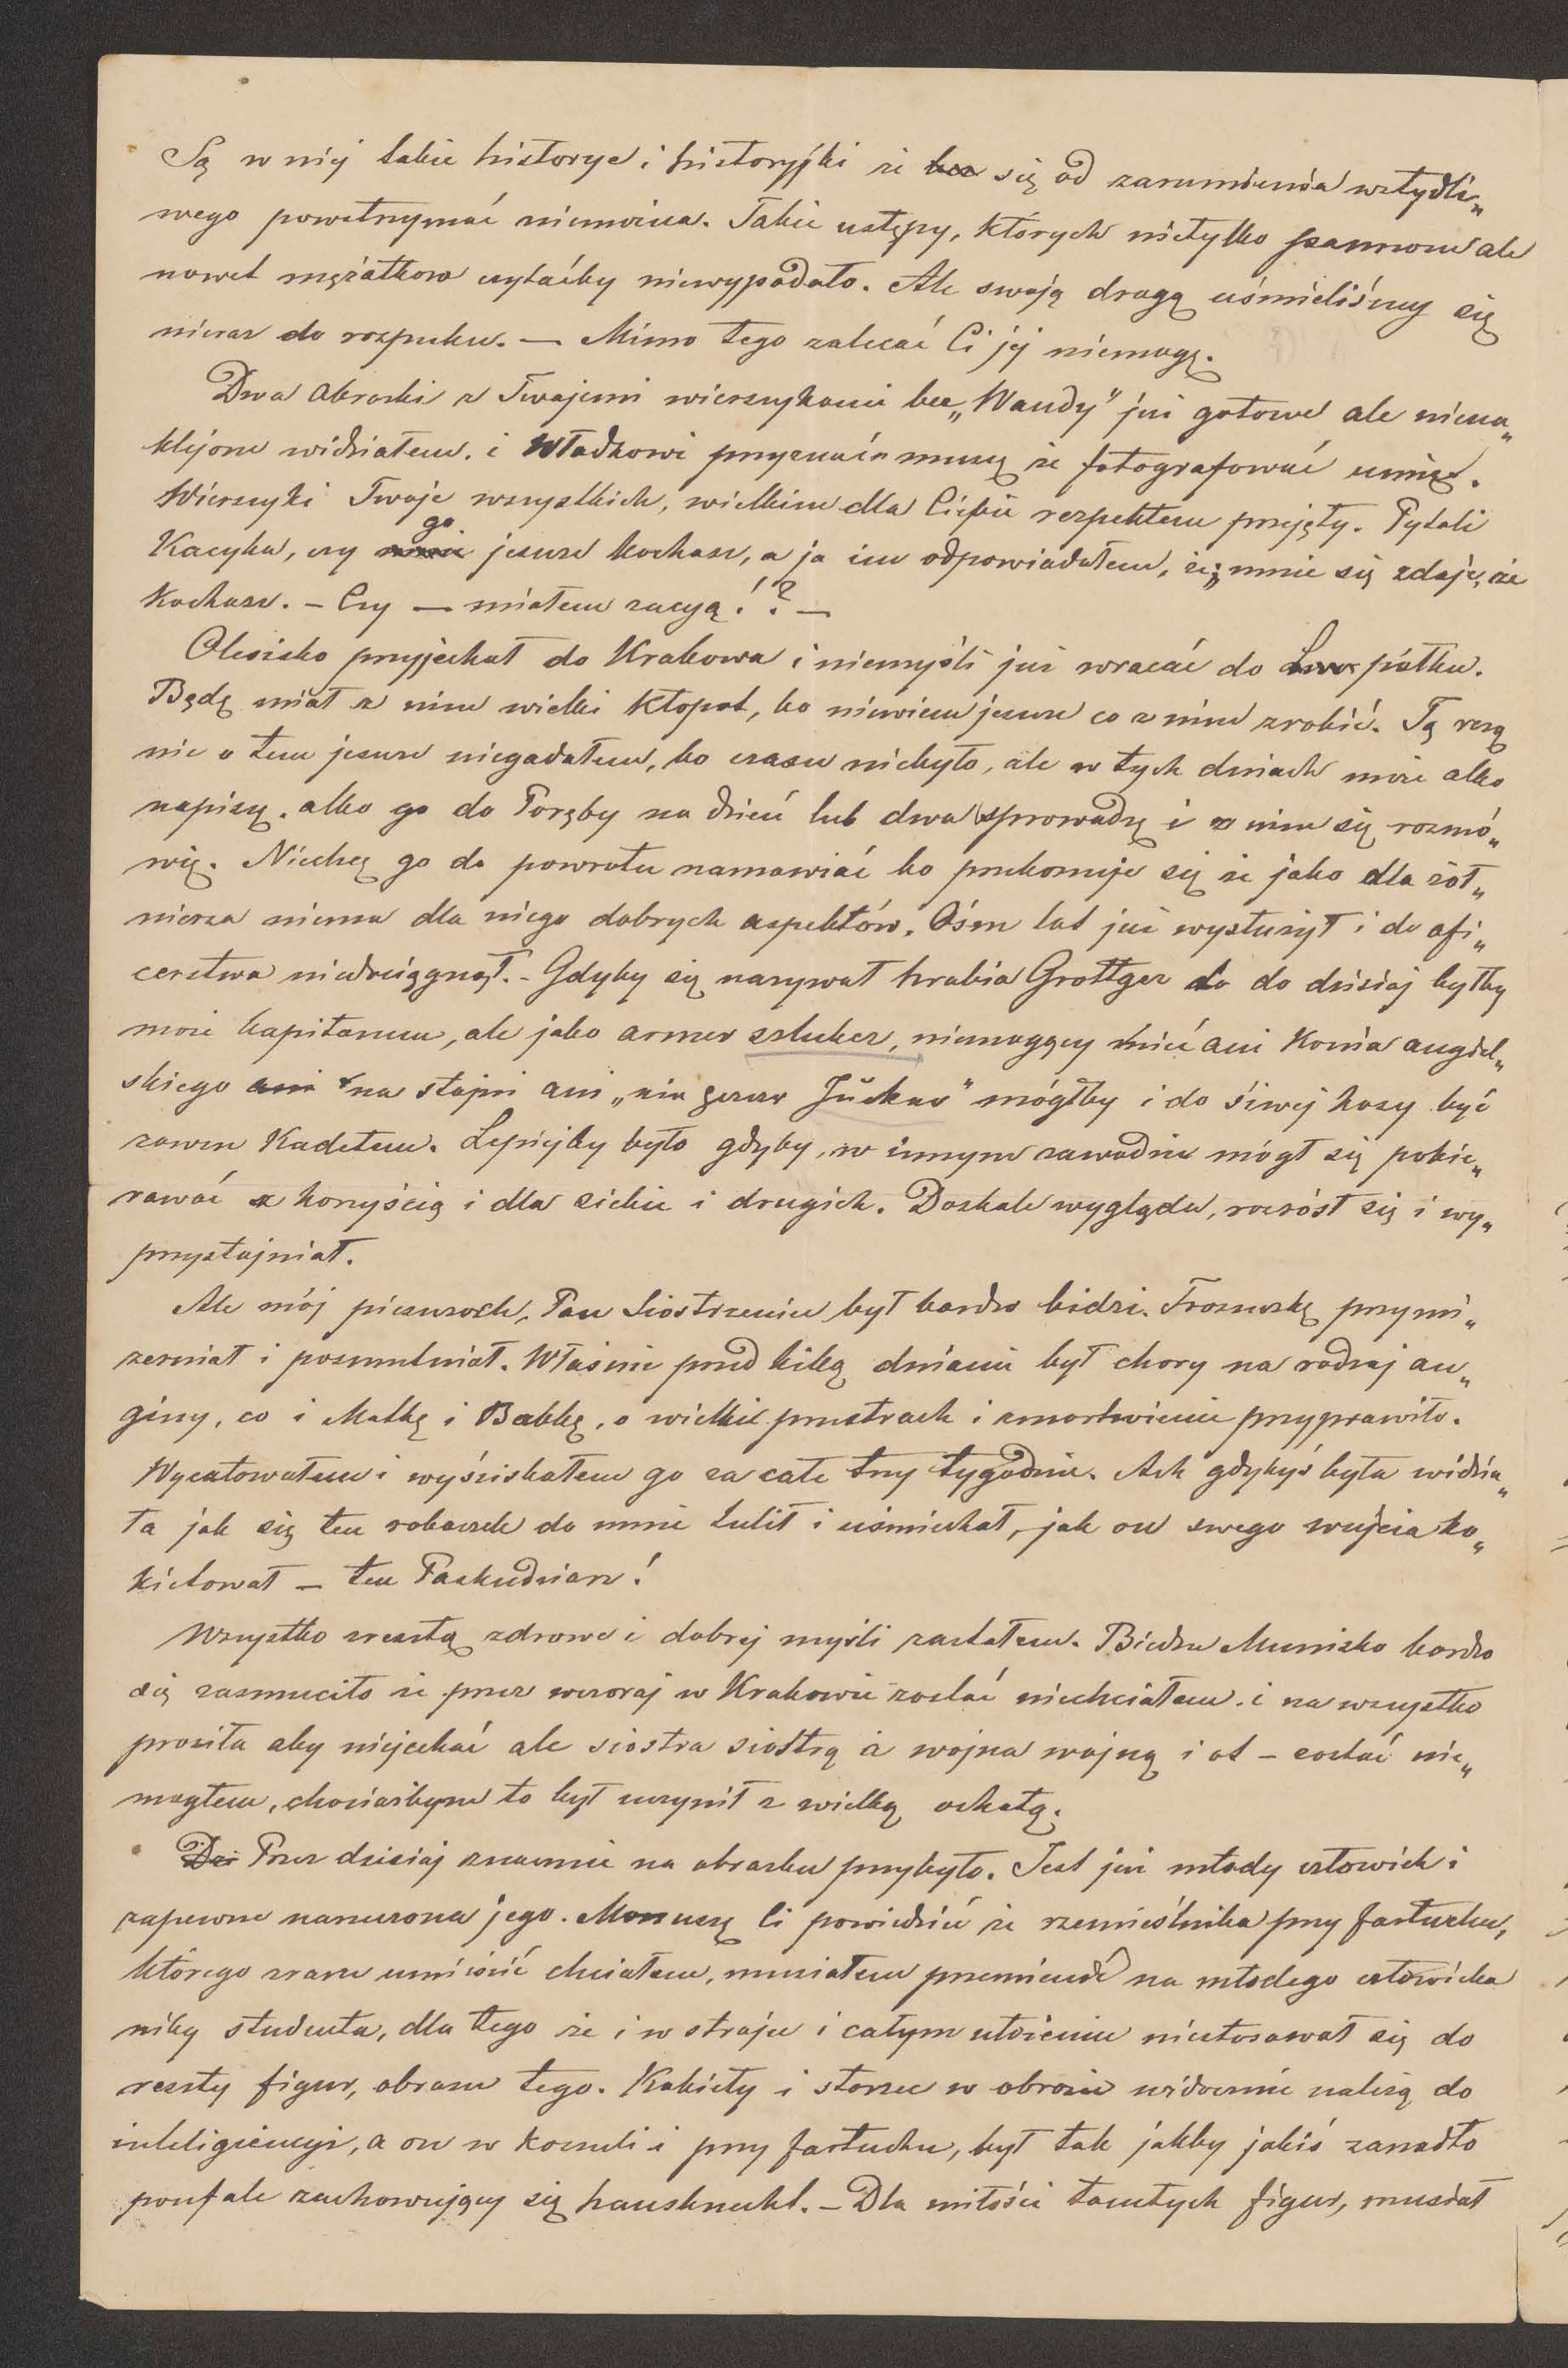 Są w niej takie historye i historyjki że bez się od zarumienia wstydli„
wego powstrzymać niemożna. Takie ustępy, których nietylko pannom ale
nawet mężatkom czytaćby niewypadało. Ale swoją drogą uśmieliśmy się
nieraz do rozpuku. — Mimo tego zalecać Ci jej niemogę.
Dwa obrazki z Twojemi wierszykami bez „Wandy" już gotowe ale niena„
klejone widziałem. i Władkowi przyznać muszę że fotografować umie.
Wierszyki Twoje wszystkich, wielkim dla Ciebie respektem przejęły. Pytali
Kacyka, czy go jeszcze kochasz, a ja im odpowiadałem, że „mnie się zdaje, że
Kochasz. — Czy — miałem racyą!? —
Olesisko przyjechał do Krakowa i niemyśli już wracać do Lww pułku.
Będę miał z nim wielki kłopot, bo niewiem jeszcze co z nim zrobić. Tą razą
nic o tem jeszcze niegadałem, bo czasu niebyło, ale w tych dniach może albo
napiszę. albo go do Poręby na dzień lub dwa sprowadzę i z nim się rozmó„
wię. Niechcę go do powrotu namawiać bo przekonuję się że jako dla żoł„
nierza niema dla niego dobrych aspektów. Ośm lat już wysłużył i do ofi„
cerstwa niedociągnął. - Gdyby się nazywał hrabia Grottger to do dzisiaj byłby
może kapitanem, ale jako armer szluker, niemogący mieć ani Konia angiel„
skiego ani na stajni ani „ein ganzer Jucker" mógłby i do siwej kosy być
zawsze Kadetem. Lepiejby było gdyby, w innym zawodzie mógł się pokie„
rować z korzyścią i dla siebie i drugich. Doskale wygląda, rozrósł się i wy„
przystojniał.
Ale mój pieszczoch, Pan Siostrzenin był bardzo bidzi. Troszeczkę przymi„
zerniał i posmutniał. Właśnie przed kilką dniami był chory na rodzaj an„
giny, co i Matkę i Babkę, o wielki przestrach i zmartwienie przyprawiło.
Wycałowałem i wyściskałem go za całe trzy tygodnie. Ach gdybyś była widzia„
ła jak się ten robaczek do mnie tulił i uśmiechał, jak on swego wujcia ko„
kietował — ten Paskudziarz!
Wszystko zresztą zdrowe i dobrej myśli zastałem. Biedne Munisko bardzo
się zasmuciło że przez wczoraj w Krakowie zostać niechciałem. i na wszystko
prosiła aby niejechać ale siostra siostrą a wojna wojną i ot — zostać nie„
mogłem, chociażbym to był uczynił z wielką ochotą.
Dzi Przez dzisiaj znacznie na obrazku przybyło. Jest już młody człowiek i
zapewne narzeczona jego. Mon uszę Ci powiedzieć że rzemieślnika przy fartuchu,
którego zrazu umieścić chciałem, musiałem przemienić na młodego człowieka
niby studenta, dla tego że i w stroju i całym ułożeniu niestosował się do
reszty figur, obrazu tego. Kobiety i starzec w obrazie widocznie należą do
inteligiencyi, a on w koszuli i przy fartuchu, był tak jakby jakiś zanadto
poufale zachowujący się hausknecht. — Dla miłości tamtych figur, musiał